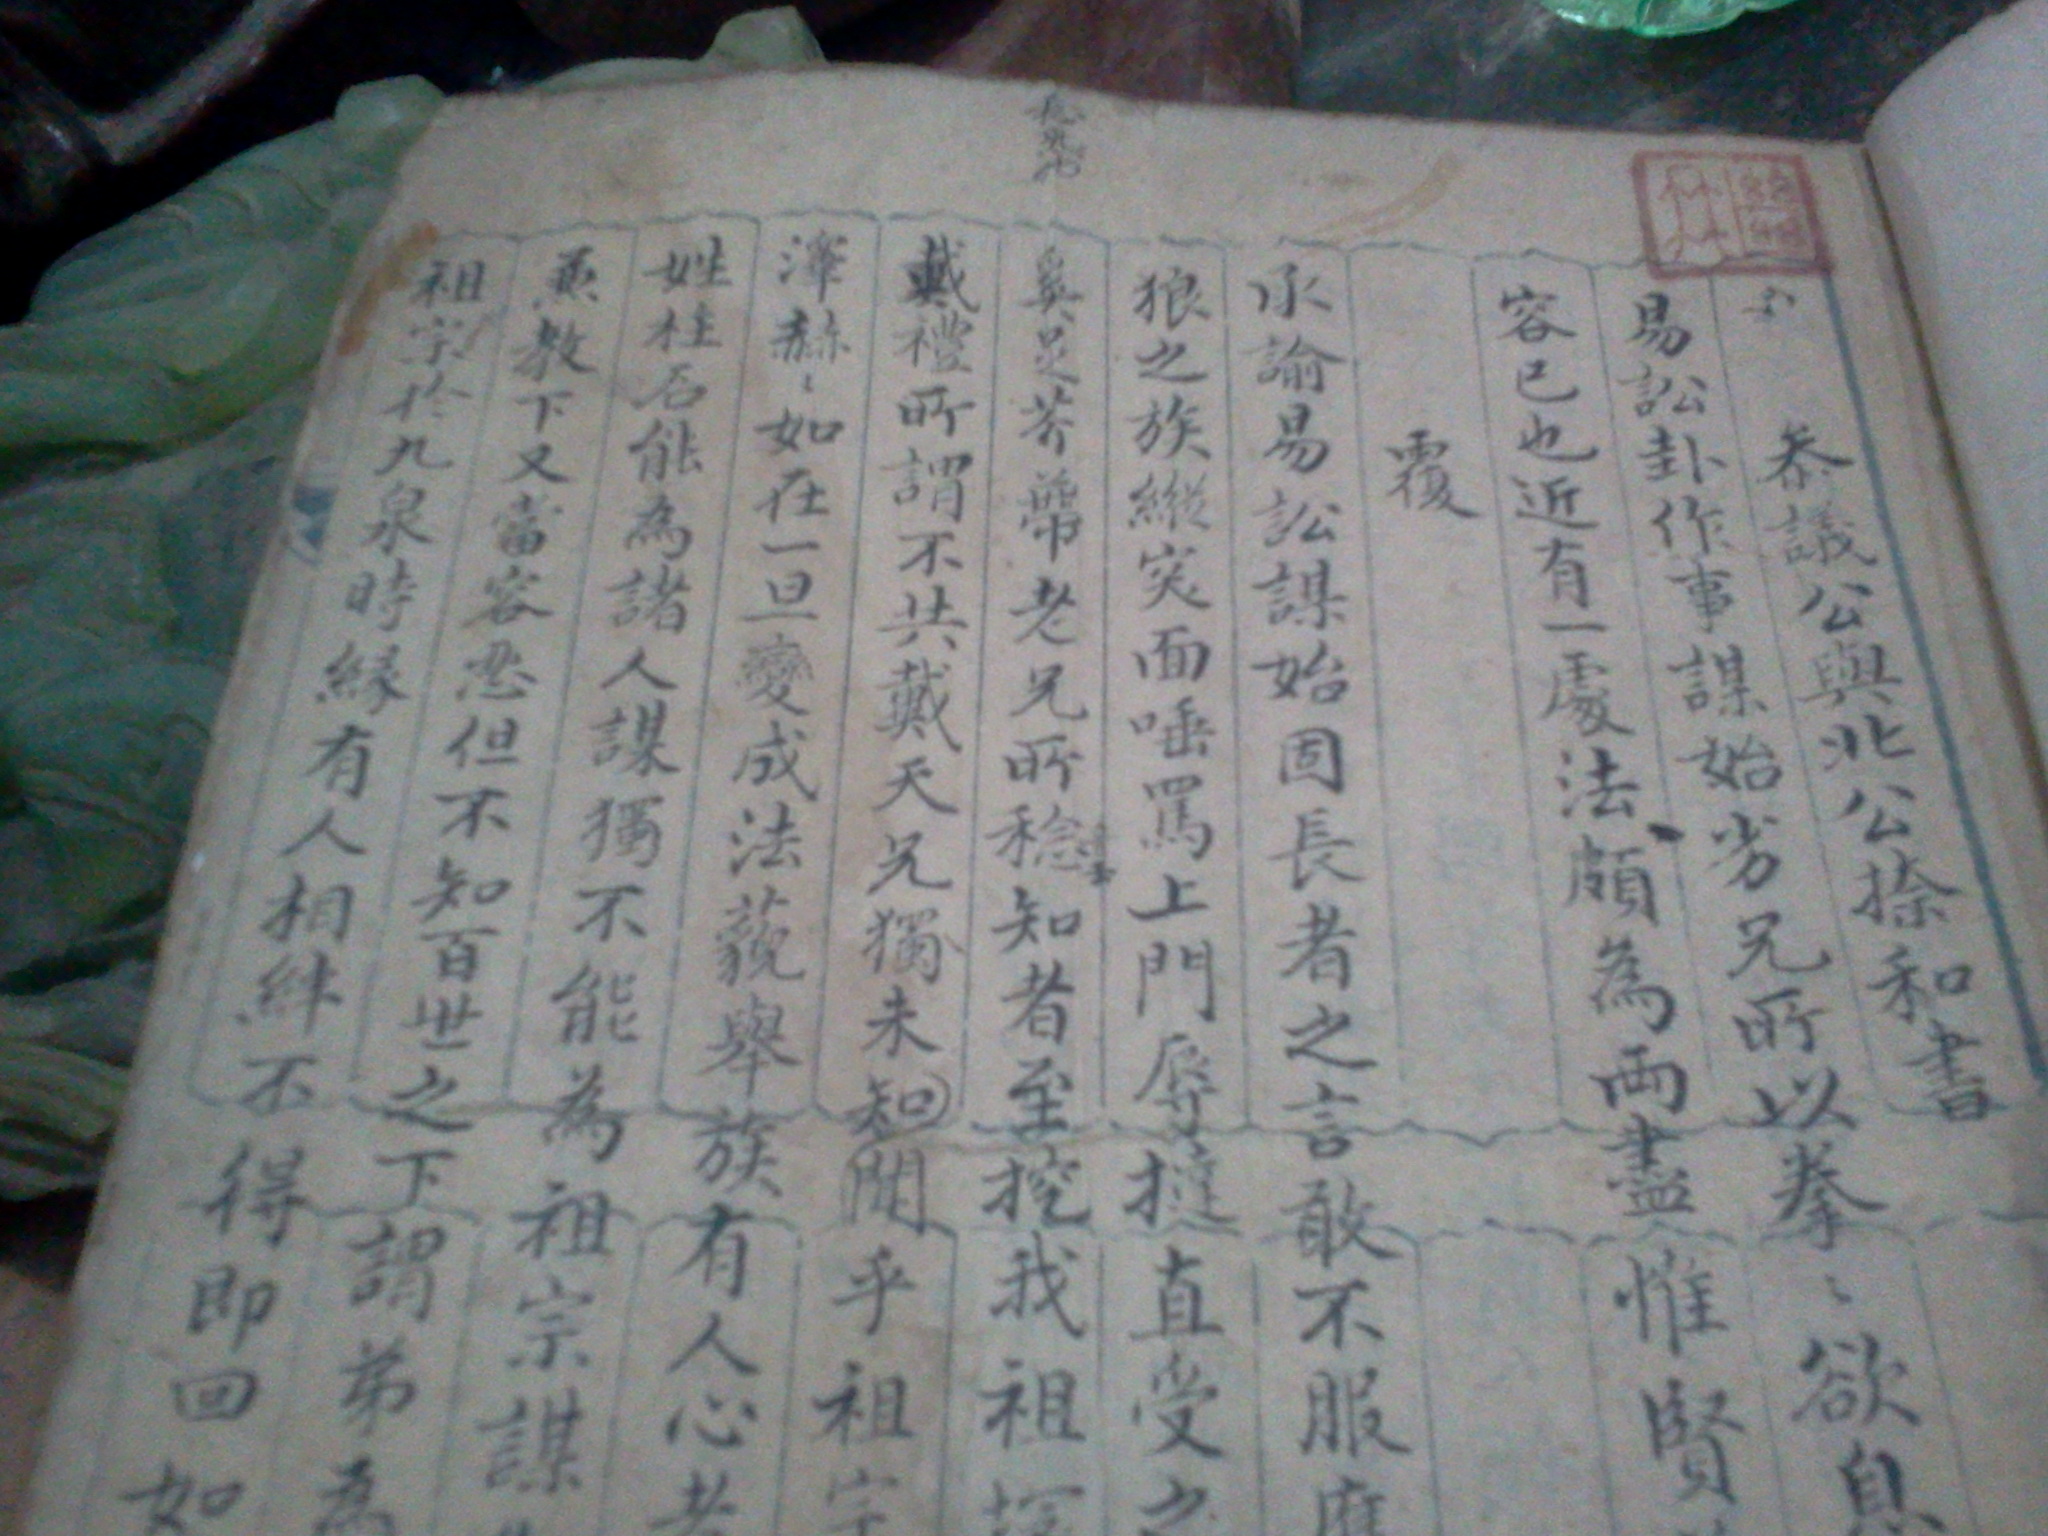 叅議公與北公捺和書
易訟卦作事謀始劣兄所以拳〻欲息
容已也近有一處法頗為兩盡惟賢
覆
承諭易訟謀始固長者之言敢不服
狼之族縱突面唾罵上門辱撻直受之
奚足芥蒂老兄所稔知者至挖我祖
戴禮所謂不共戴天兄獨未知聞乎祖
澤赫〻如在一旦變成法藐舉族有人心者
姓柱石能為諸人謀獨不能為祖宗謀
燕敎下又當容忍但不知百世之下謂弟為
祖宗於九泉時緣有人相絆不得即回如